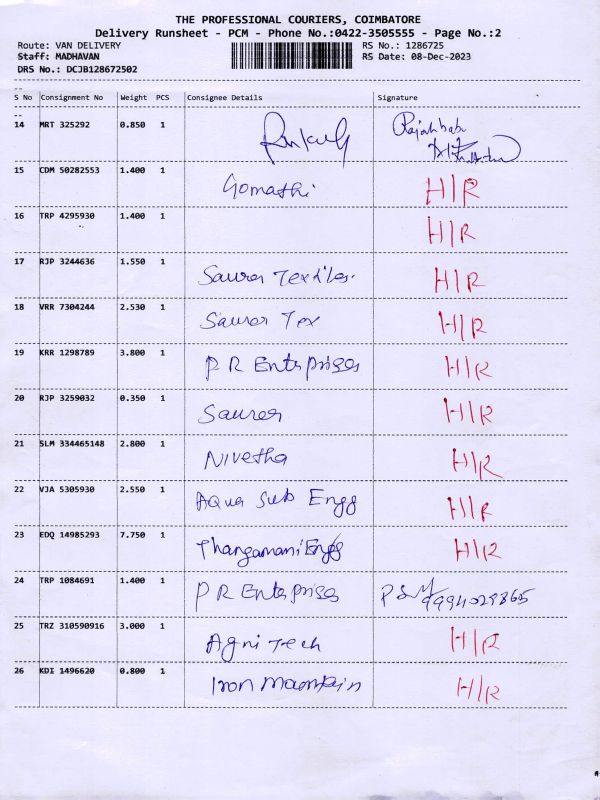 THE PROFESSIONAL COURIERS, COIMBATORE
Delivery Runsheet - PCM - Phone No.:0422-3505555 - Page No.:2
Route: VAN DELIVERY RS No.: 1286725
Staff: MADHAVAN RS Date: 08-Dec-2023
DRS No.: DCJB128672502
--
S No Consignment No Weight PCS Consignee Details Signature
--
14 MRT 325292 0.850 1 Rajahbabu
15 CDM 50282553 1.400 1 Gomathi H/R
16 TRP 4295930 1.400 1 H/R
17 RJP 3244636 1.550 1 Saurer Textiles. H/R
18 VRR 7304244 2.530 1 Saurer Tex H/R
19 KRR 1298789 3.800 1 P R Enterprises H/R
20 RJP 3259032 0.350 1 Saurer H/R
21 SLM 334465148 2.800 1 Nivetha H/R
22 VJA 5305930 2.550 1 Aqua Sub Engg H/R
23 EDQ 14985293 7.750 1 Thangamani Engg H/R
24 TRP 1084691 1.400 1 P R Enterprises P S M
25 TRZ 310590916 3.000 1 Agni Tech H/R
26 KDI 1496620 0.800 1 Iron H/R